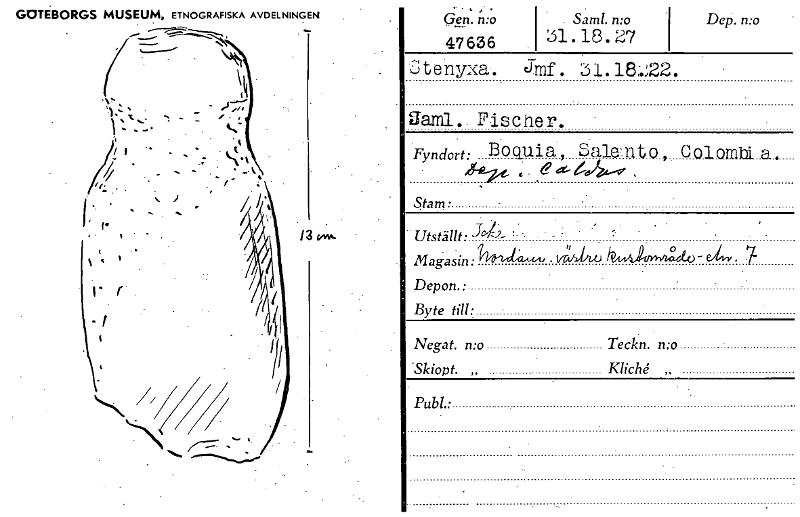 GÖTEBORGS MUSEUM, ETNOGRAFISKA AVDELNINGEN
13 cm
Gen. n:o Saml. n:o Dep. n:o
47636 31.18.27
Stenyxa. Jmf. 31.18.22.
Saml. Fischer.
Fyndort: Boquia, Salento, Colombia.
Dep. Caldas.
Stam:
Utställt: Icke
Magasin: västre kustområde - 7
Depon.:
Byte till:
Negat. n:o Teckn. n:o
Skiopt. „ Kliché „
Publ.: